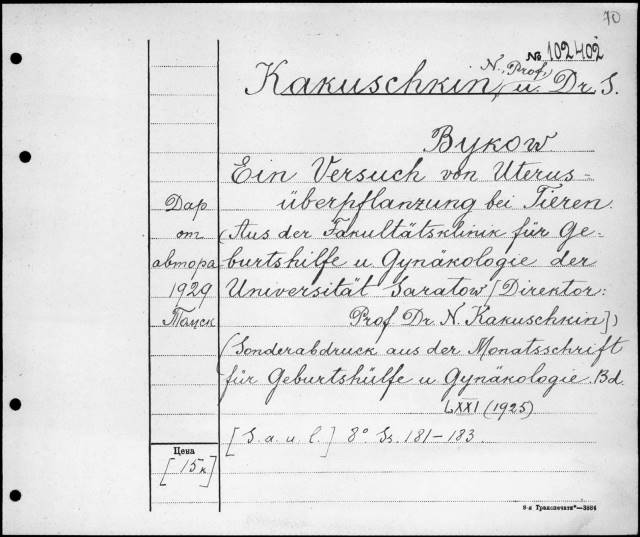 70
№ 102402
Kakuschkin, N., Prof., u. Dr. S.
Bykow
Ein Versuch von Uterus-
überpflanzung bei Tieren.
(Aus der Fakultätsklinik für Ge-
burtshilfe u. Gynäkologie der
Universität Saratow [Direktor:
Prof. Dr. N. Kakuschkin])
(Sonderabdruck aus der Monatsschrift
für Geburtshülfe u Gynäkologie. Bd.
LXXI (1925)
[S. a. u. l.] 8° Ss. 181-183.
Дар
от
автора
1929
Цена
[15к]
8-я Транспечати"—3884